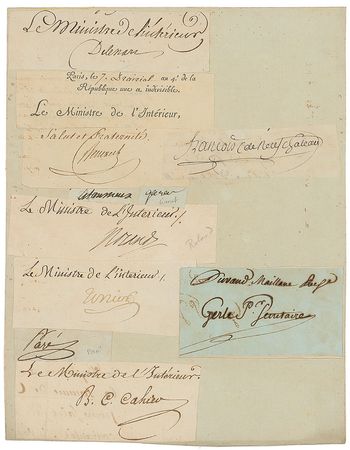 Le Ministre de l'intérieur
Delessart
Paris, le 7. Prairial an 4.e de la
République une & indivisible.
Le Ministre de l'Intérieur,
Salut et Fraternité
Benezech
François (de Neufchateau
Le Ministre de L'Interieur /.
Roland
Le Ministre de L'interieur /
Durand Maillane
Gerle Secretaire
Paré
Paré
Le Ministre de l'Intérieur.
B. C. Cahier